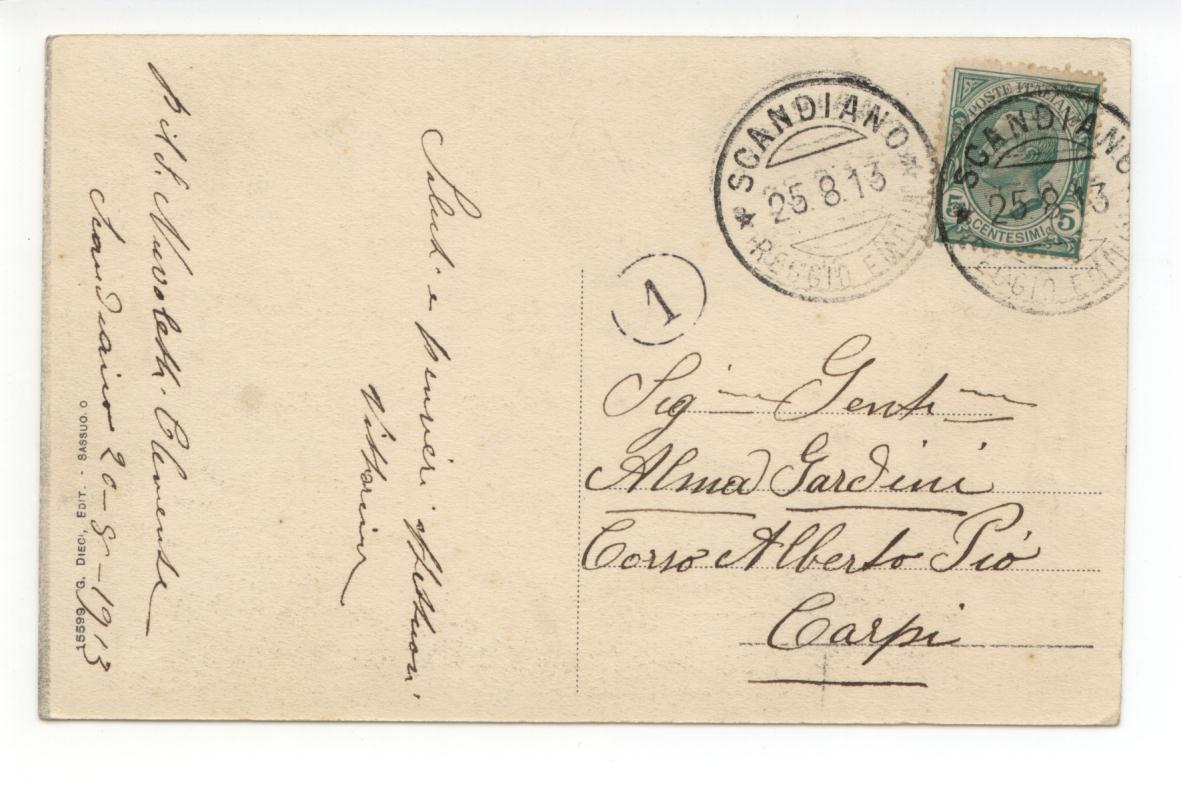 Saluti e pensieri affettuosi
Vittorina
Nuvoletti Clemente
Scandiano 20-8-1913
15599 G. DIECI, EDIT. - SASSUOLO
SCANDIANO
25.8.13
REGGIO EMILIA
POSTE ITALIANE
5 CENTESIMI 5
SCANDIANO
25 8 13
REGGIO EMILIA
1
Sig Gent
Alma Gardini
Corso Alberto Pio
Carpi